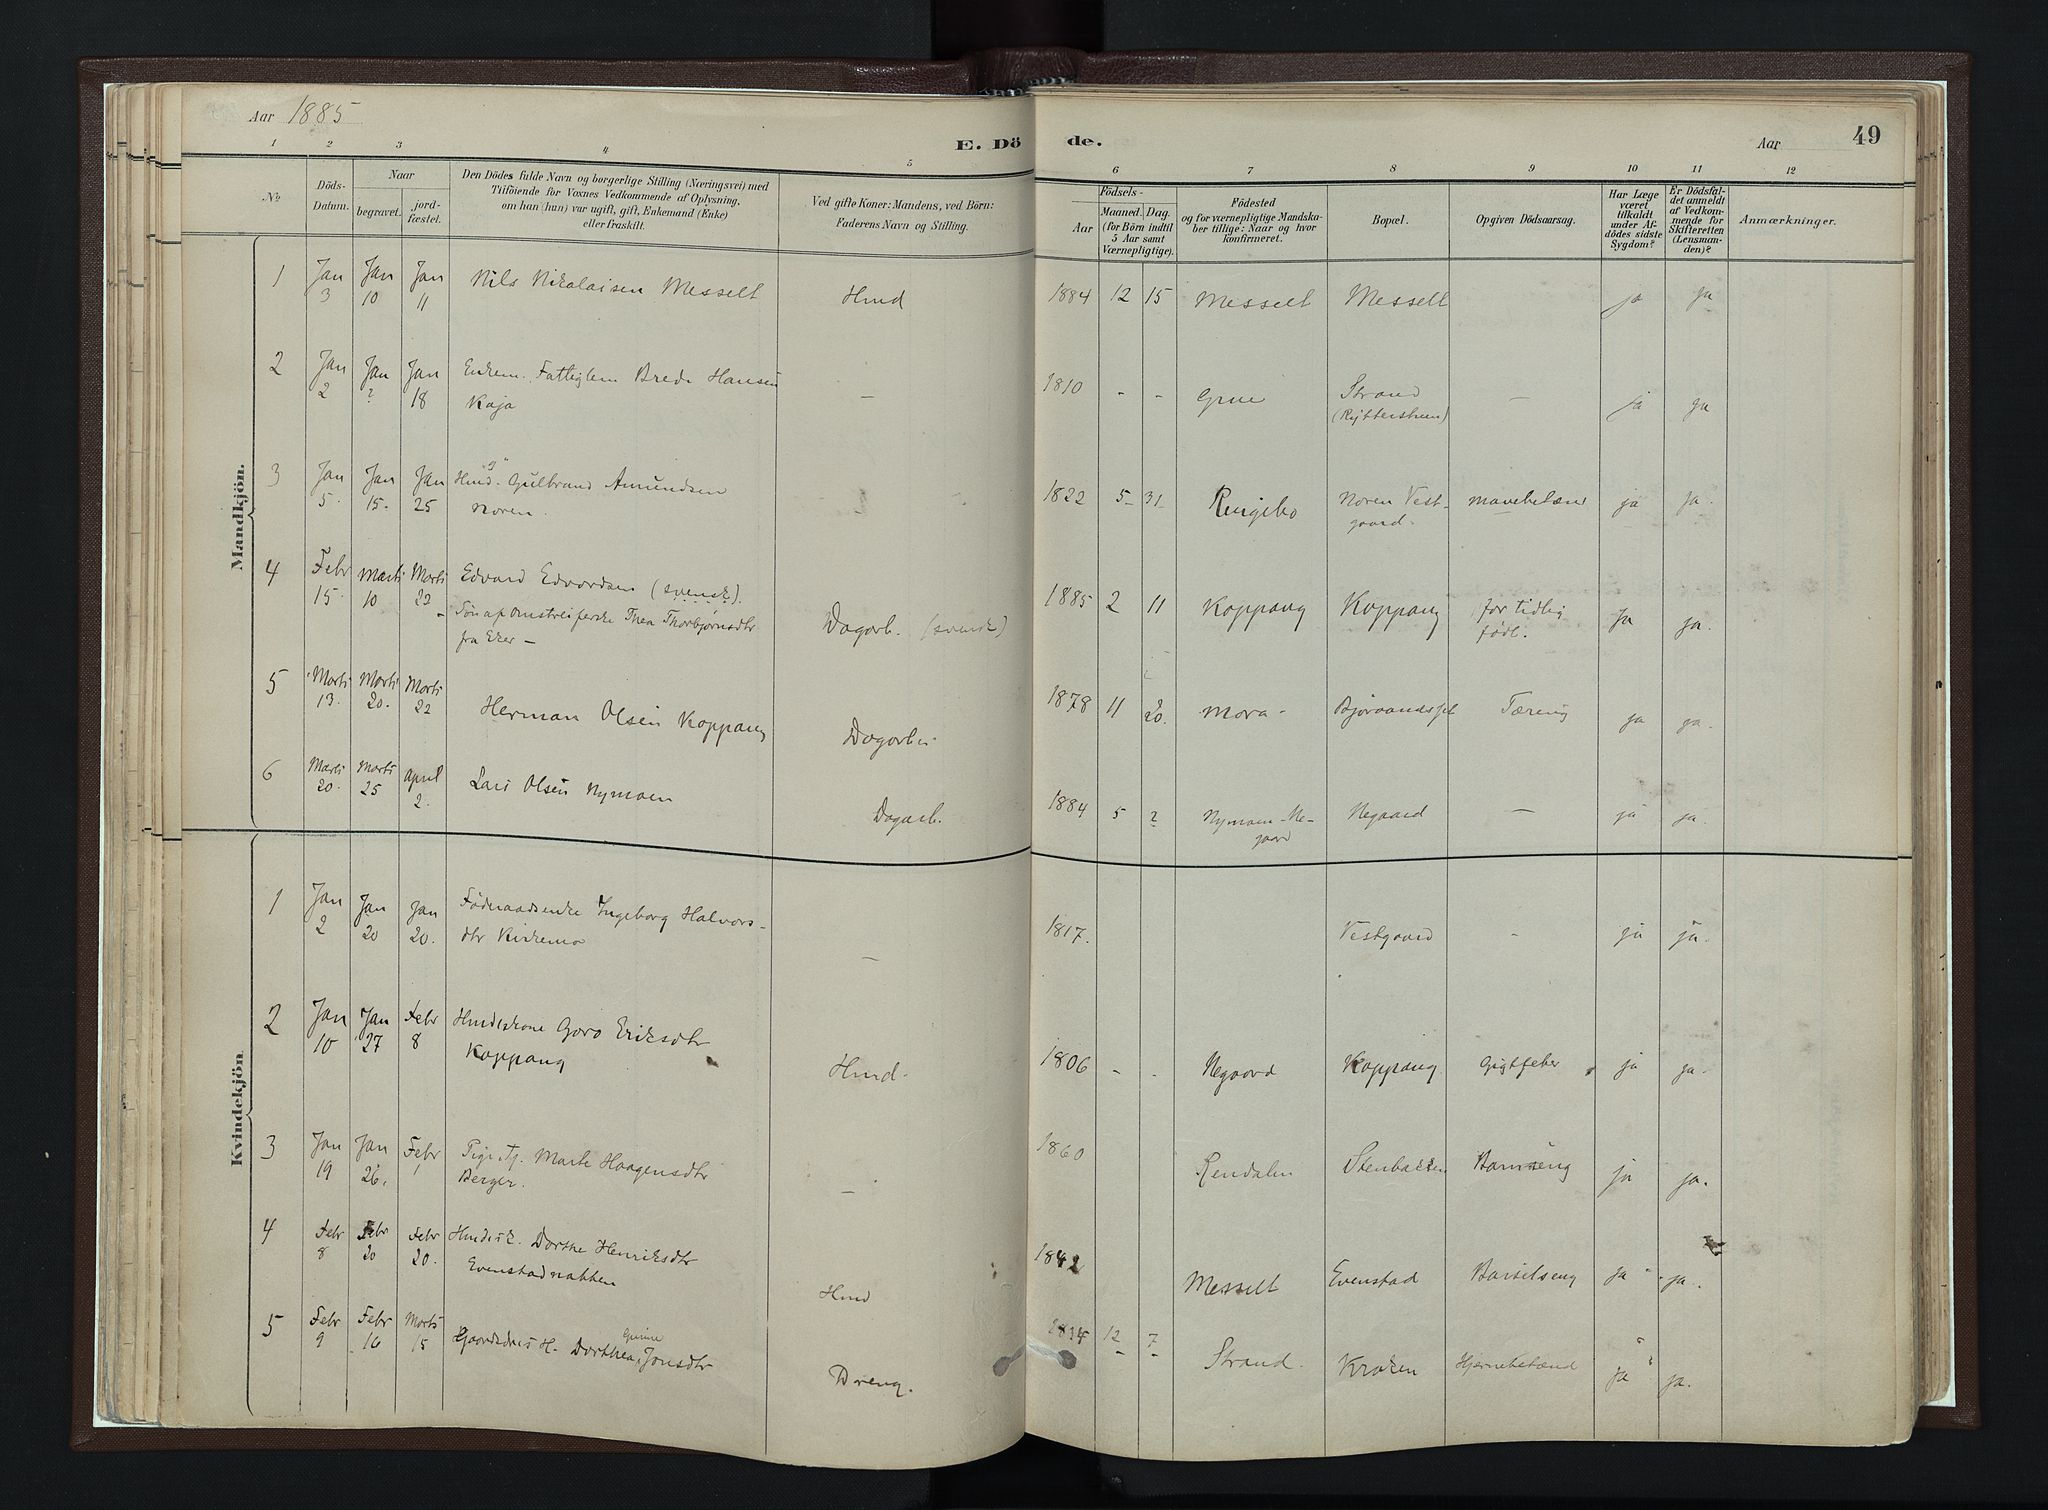 Aar 1885
E. Dö de.
Aar
49
1 2 3 4 5 6 7 8 9 10 11 12
No
Döds-Datum.
Naar
begravet.
jord-fæstet.
Den Dödes fulde Navn og borgerlige Stilling (Næringsvei) med
Tilföiende for Voxnes Vedkommende af Oplysning,
om han (hun) var ugift, gift, Enkemand (Enke)
eller fraskilt.
Ved gifte Koner: Mandens, ved Börn:
Faderens Navn og Stilling.
Födsels-
Aar
Maaned. Dag.
(for Börn indtil
5 Aar samt
Værnepligtige).
Födested
og for værnepligtige Mandska-
ber tillige: Naar og hvor
konfirmeret.
Bopæl.
Opgiven Dödsaarsag.
Har Læge
været
tilkaldt
under Af-
dödes sidste
Sygdom?
Er Dödsfal-
det anmeldt
af Vedkom-
mende for
Skifteretten
(Lensman-
den)?
Anmærkninger.
Mandkjön.
1 Jan 3 Jan 10 Jan 11 Nils Nikolaisen Messelt Hmd 1884 12 15 Messelt Messelt ja ja
2 Jan 2 Jan ? Jan 18 Enkem. Fattiglem Brede Hansen
Kaja — 1810 - - Grue Strand — ja ja
3 Jan 5. Jan 15. Jan 25 Hmd. Gulbrand Amundsen
Noren. — 1822 5 31 Ringebo Noren Vest-
gaard. ja ja.
4 Febr 15. Marts 10 Marts 22 Edvard Edvardsen (svensk).
Søn af omstreiferske Thea Thorbjørnsdtr
fra Eker —
Dagarb. (svensk) 1885 2 11 Koppang Koppang for tidlig
født. ja ja.
5 Marts 13. Marts 20. Marts 22 Herman Olsen Koppang Dagarb. 1878 11 20. ? Mora - Tæring ja ja.
6 Marts 20. Marts 25 April 2. Lars Olsen Nymoen Dagarb. 1884 5 ? Nymoen - Ne-
gaard Negaard — ja ja.
Kvindekjön.
1 Jan 2 Jan 20 Jan 20. Føderaadsenke Ingeborg Halvors-
dtr Kirkemo — 1817. Vestgaard - ja ja.
2 Jan 10 Jan 27 Febr 8 Hmdskone Goro Eriksdtr
Koppang Hmd. 1806 - - Negaard Koppang Gigtfeber ja ja.
3 Jan 19 Jan 26. Febr 1 Pige Marte Haagensdtr
Berger. — 1860 Rendalen Stenbakken Barnseng ja ja.
4 Febr 8 Febr 20 Febr 20. Hmdsk. Dorthe Henriksdtr
Evenstadnakken Hmd 1842 Messelt Evenstad Barselseng ja ja.
5 Febr 9 Febr 16 Marts 15 Dorthea Gunine Jonsdtr
Dreng. 12 7 Strand. Kroken Hjernebetænd ja ja.